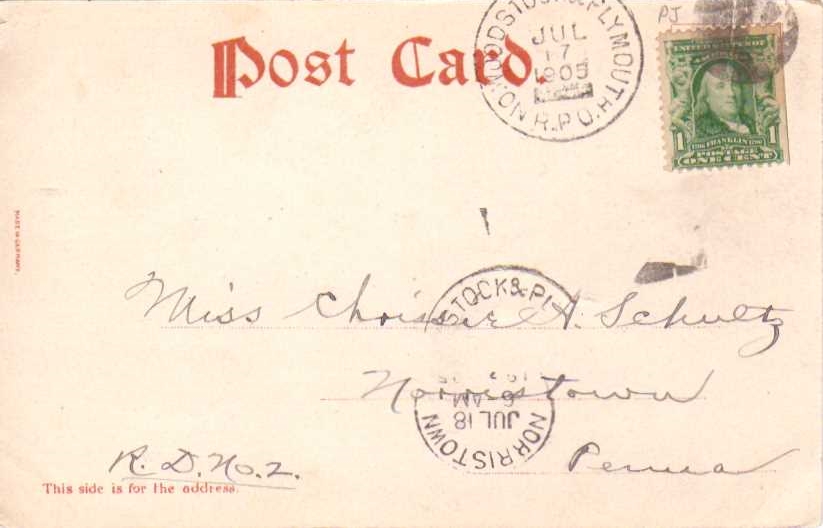 Post Card.
NO. WOODSTOCK & PLYMOUTH
JUL
17
1905
R.P.O.
PJ
UNITED STATES OF
AMERICA
1 1
FRANKLIN
POSTAGE
ONE CENT
MADE IN GERMANY.
STOCK & PL
Miss Chrissie A. Schultz
Norristown
6 AM
JUL 18
NORRISTOWN
Penna
R. D. No. 2.
This side is for the address.